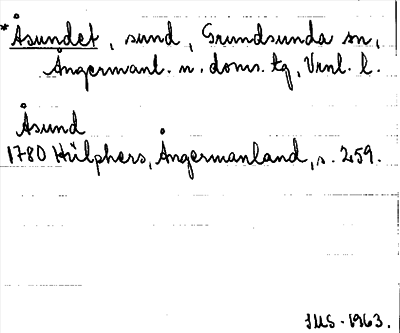 *Åsundet, sund, Grundsunda sn,
Ångermanl. n. doms. tg, Vrnl. l.
Åsund
1780 Hülphers, Ångermanland, s. 259.
IMS. 1963.